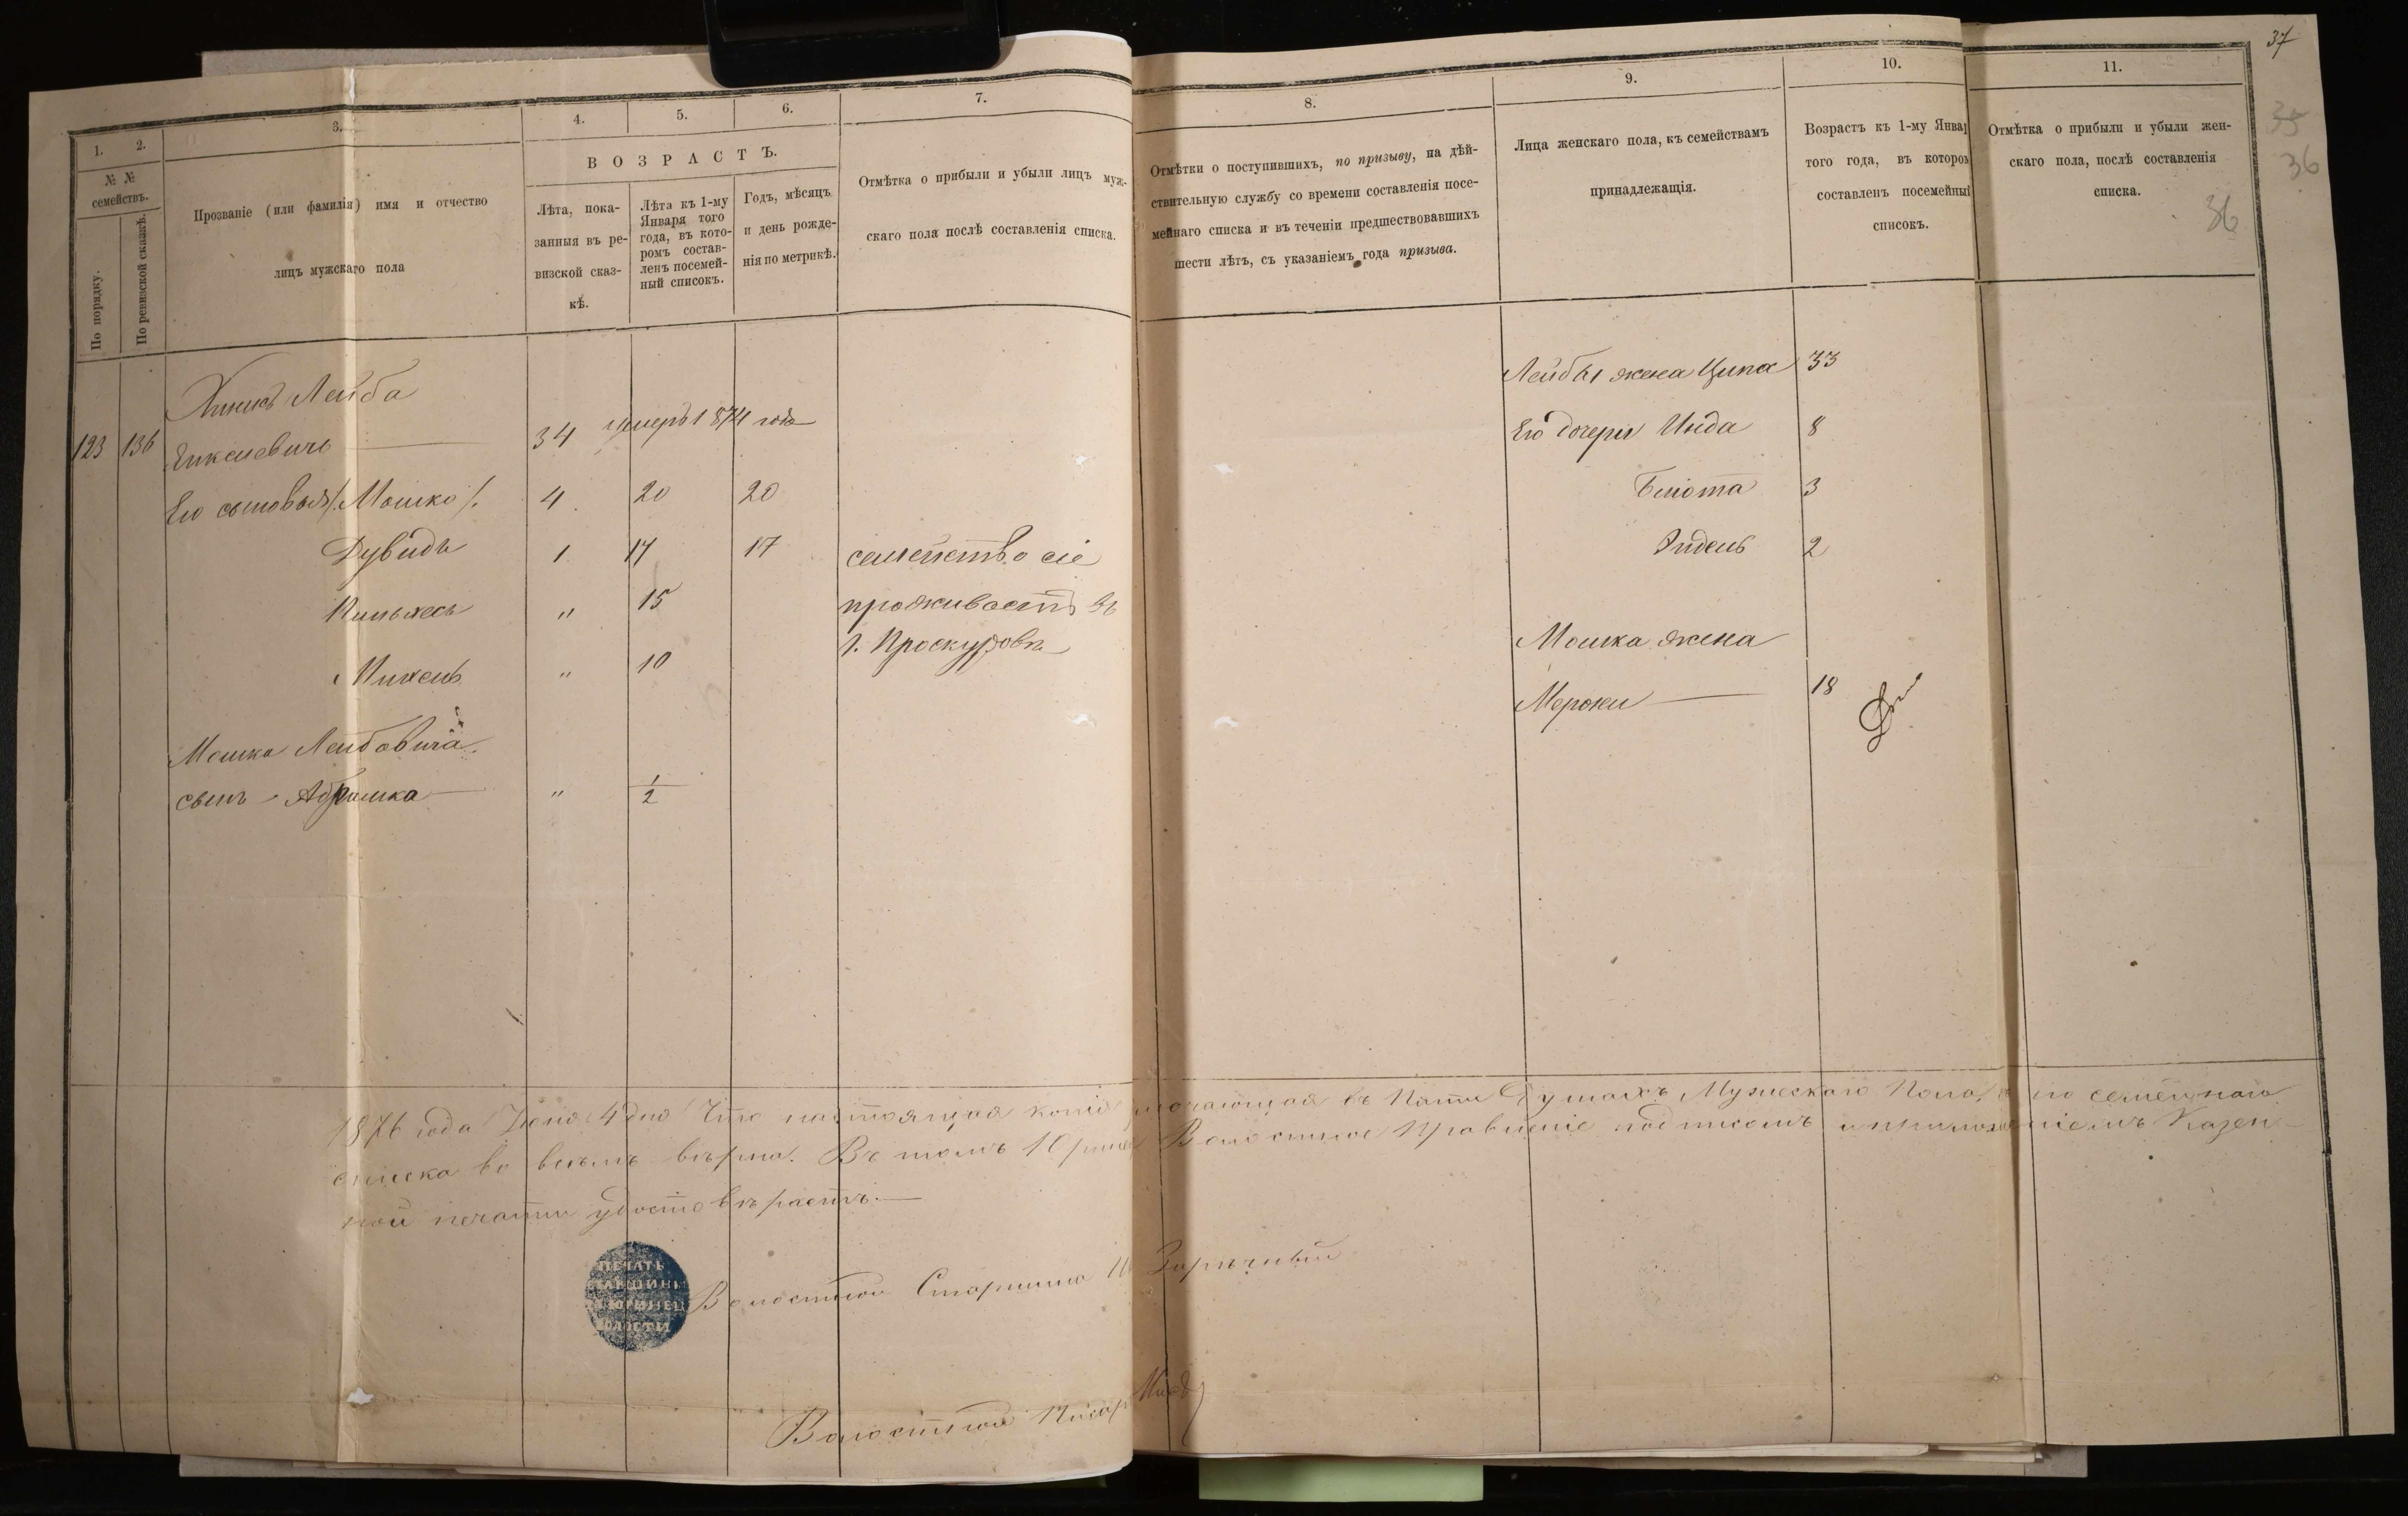 37
35
36
36
1.
2.
3.
4.
5.
6.
7.
8.
9.
10.
11.
№ №
семействъ.
По порядку.
По ревизской сказкѣ.
Прозваніе (или фамилія) имя и отчество
лицъ мужскаго пола
ВОЗРАСТЪ.
Лѣта, пока-
занныя въ ре-
визской сказ-
кѣ.
Лѣта къ 1-му
Января того
года, въ кото-
ромъ состав-
ленъ посемей-
ный списокъ.
Годъ, мѣсяцъ
и день рожде-
нія по метрикѣ.
Отмѣтка о прибыли и убыли лицъ муж-
скаго пола послѣ составленія списка.
Отмѣтки о поступившихъ, по призыву, на дѣй-
ствительную службу со времени составленія посе-
мейнаго списка и въ теченіи предшествовавшихъ
шести лѣтъ, съ указаніемъ года призыва.
Лица женскаго пола, къ семействамъ
принадлежащія.
Возрастъ къ 1-му Январ
того года, въ котором
составленъ посемейный
списокъ.
Отмѣтка о прибыли и убыли жен-
скаго пола, послѣ составленія
списка.
Лейба
123 136 34 умеръ 1874 года
Его сыновья /. Мошко /. 4 20 20
Дувидъ 1 17 17
" 15
" 10
Мошка Лейбовича
сынъ - Абрамка " 1/2
семейство сіе
проживаетъ въ
г. Проскуровѣ
Лейбы жена Ципа 33
Его дочери Инда 8
Блюта 3
Эйдель 2
Мошка жена
18
1876 года Іюня 4 дня Что настоящая копія въ Пяти Душахъ Мужескаго Пола, по семейнаго
списка во всемъ вѣрна. Въ томъ Волостное Правленіе подписомъ и приложеніемъ Казен-
ной печати удостовѣряетъ.
ПЕЧАТЬ
СТАРШИНЫ
ВОЛОСТИ
Волостной Старшина
Волостной Писарь